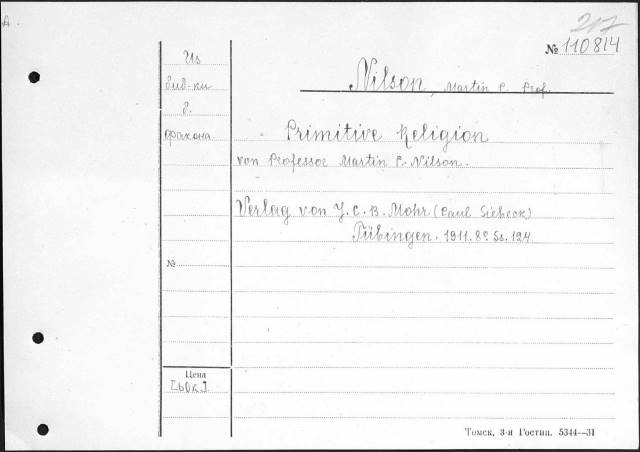 A
217
№ 110814
Из
биб-ки
б.
фрахона
Nilson, Martin P. Prof.
Primitive Religion
von Professor Martin P. Nilson.
Verlag von J. C. B. Mohr (Paul Siebeck)
Tübingen. 1911. 8º Ss. 124
№
Цена
[60к.]
Томск, 3-я Гостип. 5344—31